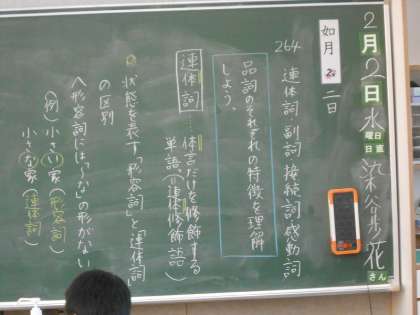 2月2日水曜日
日直 染谷彩花さん
如月 二日
264 連体詞・副詞・接続詞・感動詞
品詞のそれぞれの特徴を理解
しよう。
連体詞……体言だけを修飾する
単語(連体修飾語)
◎状態を表す「形容詞」と「連体詞」
の区別
〈形容詞には「〜な」の形がない〉
(例)小さい家(形容詞)
小さな家(連体詞)